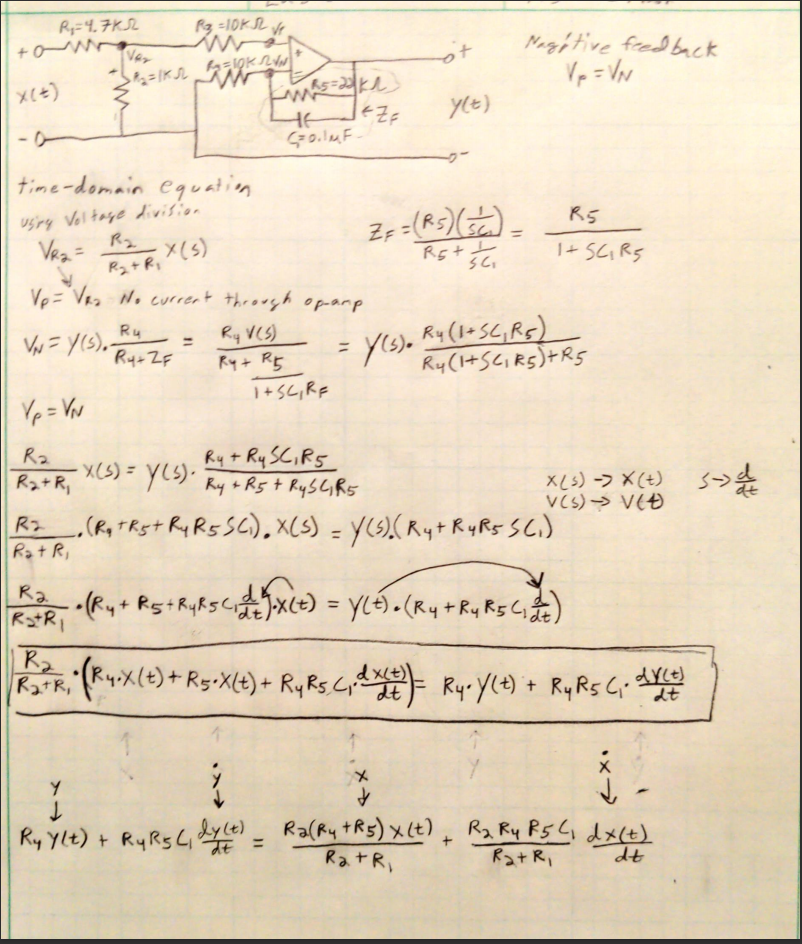 R₁=4.7KΩ R₃=10KΩ Vp
+ VR₂ + -
R₂=1KΩ R₄=10KΩ VN
X(t) R₅=22KΩ
C₁=0.1μF ← ZF y(t)
Negative feedback
Vp = VN
time-domain equation
using Voltage division
VR₂ = R₂/(R₂+R₁) X(s)
ZF = (R₅)(1/SC₁)/(R₅ + 1/SC₁) = R₅/(1+SC₁R₅)
Vp = VR₂ No current through opamp
VN = Y(s)·R₄/(R₄+ZF) = R₄ Y(s)/(R₄ + R₅/(1+SC₁RF)) = Y(s)·R₄(1+SC₁R₅)/(R₄(1+SC₁R₅)+R₅)
Vp = VN
R₂/(R₂+R₁) X(s) = Y(s)·(R₄+R₄SC₁R₅)/(R₄+R₅+R₄SC₁R₅)
X(s) → X(t) S → d/dt
V(s) → V(t)
R₂/(R₂+R₁)·(R₄+R₅+R₄R₅SC₁)·X(s) = Y(s)·(R₄+R₄R₅SC₁)
R₂/(R₂+R₁)·(R₄+R₅+R₄R₅C₁ d/dt)·X(t) = Y(t)·(R₄+R₄R₅C₁ d/dt)
R₂/(R₂+R₁)·(R₄·X(t)+R₅·X(t)+R₄R₅C₁·dX(t)/dt) = R₄·Y(t)+R₄R₅C₁·dY(t)/dt
y ẏ x ẋ
R₄ Y(t) + R₄R₅C₁ dy(t)/dt = R₂(R₄+R₅)X(t)/(R₂+R₁) + R₂R₄R₅C₁/(R₂+R₁) dx(t)/dt